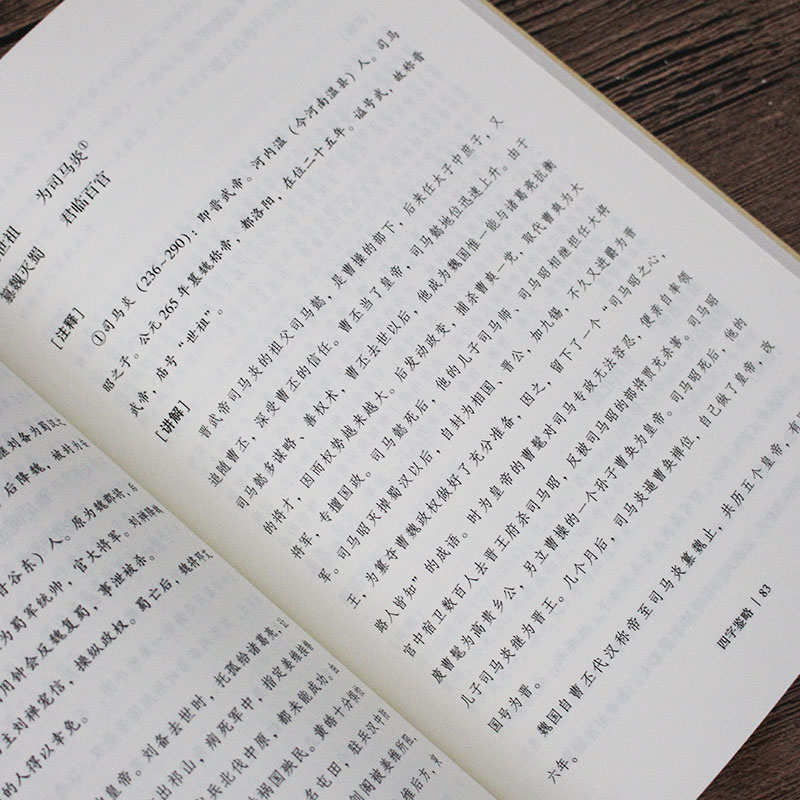 继刘备为蜀汉之
后降魏，被封为
甘谷东）人。原为魏郡将，后
为蜀军统帅，官大将军。刘禅降魏
用钟会反魏复蜀，事泄被杀。
主刘禅宠信，操纵政权。蜀亡后，魏将邓艾
的人得以幸免。
皇帝。刘备去世时，托孤给诸葛亮，让
出祁山，病死军中，指定姜维接替
兵北伐中原，都未能成功。
祸国殃民。黄皓十分惧怕
名屯田，驻兵汉中
剑阁被姜维所阻，
维后方，
世祖 为司马炎①
篡魏灭蜀 君临百官
[注释]
①司马炎（236~290）：即晋武帝。河内温（今河南温县）人。司马
昭之子。公元265年篡魏称帝，都洛阳，在位二十五年。谥号武，故称晋
武帝，庙号“世祖”。
[讲解]
晋武帝司马炎的祖父司马懿，是曹操的部下，后来任太子中庶子，又
追随曹丕，深受曹丕的信任。曹丕当了皇帝，司马懿地位迅速上升。由于
司马懿多谋略、善权术，曹丕去世以后，他成为魏国惟一能与诸葛亮抗衡
的将才，因而权势越来越大。后发动政变，捕杀曹爽一党，取代曹爽为大
将军，专擅国政。司马懿死后，他的儿子司马师、司马昭相继担任大将
军。司马昭灭掉蜀汉以后，自封为相国、晋公，加九锡，不久又进爵为晋
王，为篡夺曹魏政权做好了充分准备，因之，留下了一个“司马昭之心，
路人皆知”的成语。时为皇帝的曹髦对司马专政无法容忍，便亲自率领
宫中宿卫数百人去晋王府杀司马昭，反被司马昭的部将贾充杀害。司马昭
废曹髦为高贵乡公，另立曹操的一个孙子曹奂为皇帝。司马昭死后，他的
儿子司马炎继为晋王。几个月后，司马炎逼曹奂禅位，自己做了皇帝，改
国号为晋。
魏国自曹丕代汉称帝至司马炎篡魏止，共历五个皇帝，有
六年。
四字鉴略 | 83